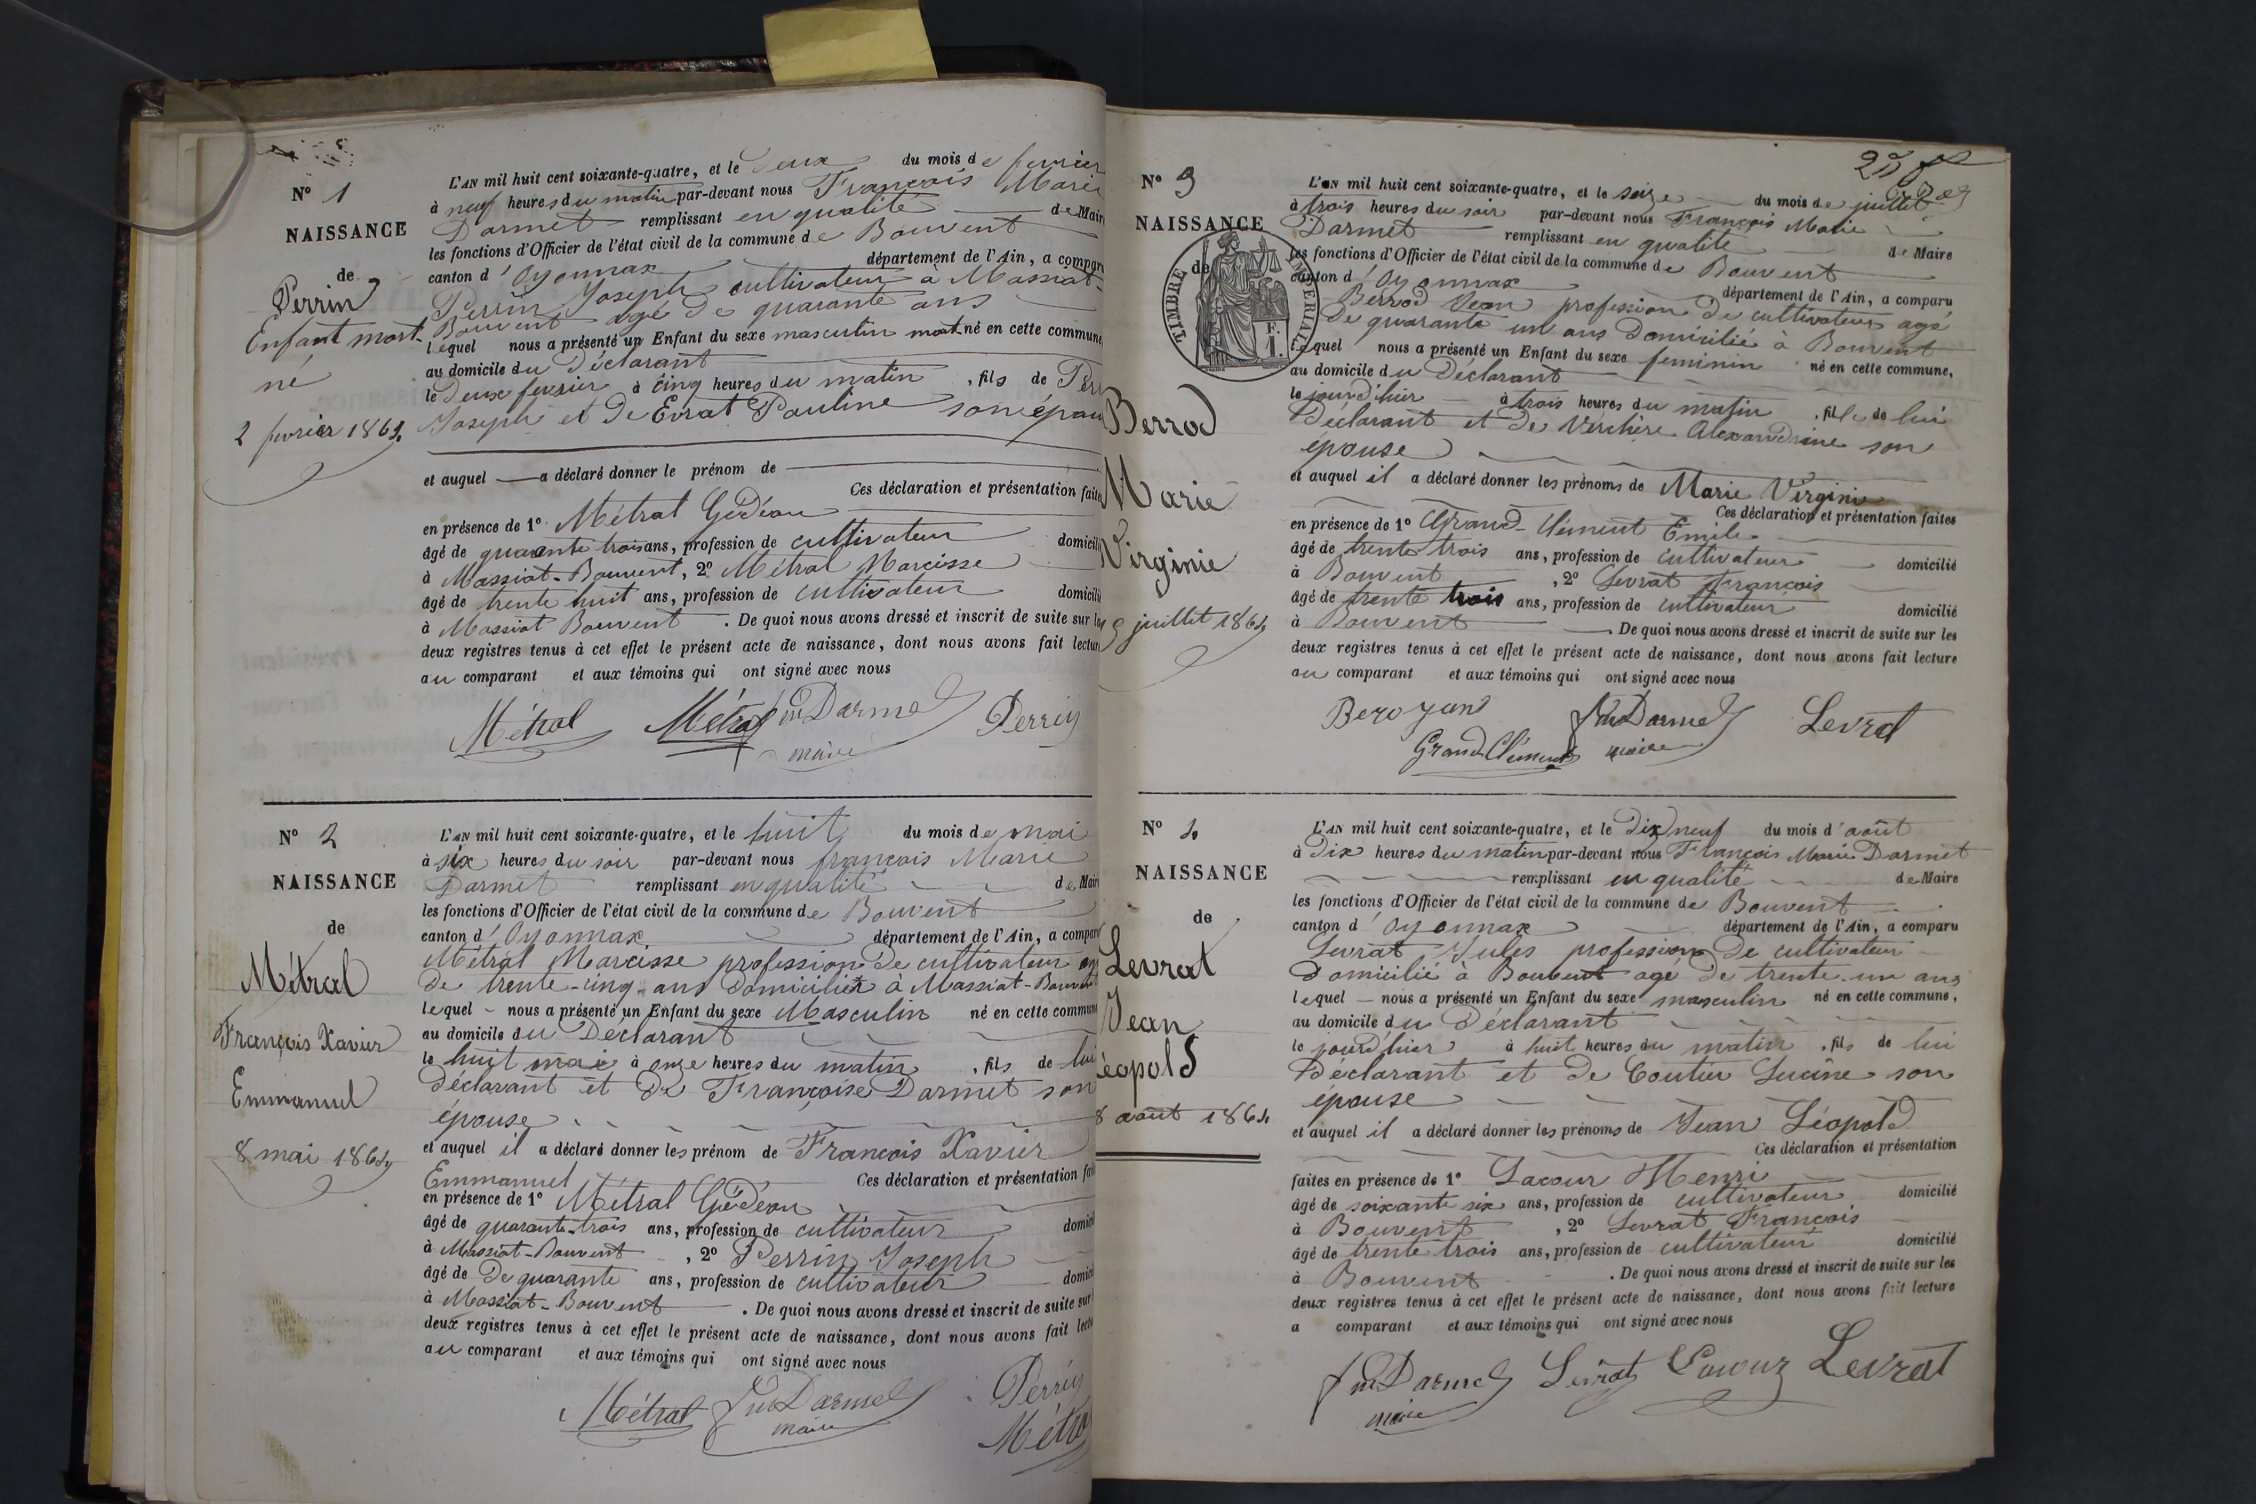 N° 1
NAISSANCE
de
Perrin
Enfant mort-
né
2 février 1864
L'AN mil huit cent soixante-quatre, et le deux du mois de février
à neuf heures du matin par-devant nous François Marie
Darmet remplissant en qualité de Maire
les fonctions d'Officier de l'état civil de la commune de Bouvent
canton d'Oyonnax département de l'Ain, a comparu
Perrin Joseph cultivateur à Massiat-
Bouvent agé de quarante ans
lequel nous a présenté un Enfant du sexe masculin mort-né en cette commune,
au domicile du Déclarant
le Deux fevrier à cinq heures du matin, fils de Perr
Joseph et de Evrat Pauline son épou
et auquel a déclaré donner le prénom de
Ces déclaration et présentation faites
en présence de 1° Métral Gédéon
âgé de quarante trois ans, profession de cultivateur domicilié
à Massiat-Bouvent, 2° Métral Narcisse
âgé de trente huit ans, profession de cultivateur domicilié
à Massiat Bouvent. De quoi nous avons dressé et inscrit de suite sur les
deux registres tenus à cet effet le présent acte de naissance, dont nous avons fait lecture
au comparant et aux témoins qui ont signé avec nous
Métral Métral fm Darmet Perrin
maire
N° 2
NAISSANCE
de
Métral
François Xavier
Emmanuel
8 mai 1864
L'AN mil huit cent soixante-quatre, et le huit du mois de mai
à six heures du soir par-devant nous françois Marie
Darmet remplissant en qualité de Maire
les fonctions d'Officier de l'état civil de la commune de Bouvent
canton d'Oyonnax département de l'Ain, a comparu
Métral Narcisse profession de cultivateur ag
de trente-cinq ans domicilié à Massiat-Bouvent
lequel nous a présenté un Enfant du sexe Masculin né en cette commune
au domicile du Déclarant
le huit mai à onze heures du matin, fils de lui
déclarant et de Françoise Darmet son
épouse
et auquel il a déclaré donner les prénom de François Xavier
Emmanuel Ces déclaration et présentation fai
en présence de 1° Métral Gédéon
âgé de quarante-trois ans, profession de cultivateur domicil
à Massiat-Bouvent, 2° Perrin Joseph
âgé de De quarante ans, profession de cultivateur domici
à Massiat-Bouvent. De quoi nous avons dressé et inscrit de suite sur
deux registres tenus à cet effet le présent acte de naissance, dont nous avons fait lectu
au comparant et aux témoins qui ont signé avec nous
Métral fm Darmet Perrin
maire Métra
N° 3
NAISSANCE
de
TIMBRE IMPERIAL
F.
1.
Berrod
Marie
Virginie
15 juillet 1864
L'AN mil huit cent soixante-quatre, et le seize du mois de juillet
à trois heures du soir par-devant nous François Marie
Darmet remplissant en qualité de Maire
les fonctions d'Officier de l'état civil de la commune de Bouvent
canton d'Oyonnax département de l'Ain, a comparu
Berrod Jean profession de cultivateur agé
de quarante un ans domicilié à Bouvent
lequel nous a présenté un Enfant du sexe feminin né en cette commune,
au domicile du Déclarant
le jour d'hier à trois heures du matin, fille de lui
Déclarant et de Verchère Alexandrine son
épouse
et auquel il a déclaré donner les prénoms de Marie Virginie
Ces déclaration et présentation faites
en présence de 1° Grand-Clément Emile
âgé de trente trois ans, profession de cultivateur domicilié
à Bouvent, 2° Levrat François
âgé de trente trois ans, profession de cultivateur domicilié
à Bouvent. De quoi nous avons dressé et inscrit de suite sur les
deux registres tenus à cet effet le présent acte de naissance, dont nous avons fait lecture
au comparant et aux témoins qui ont signé avec nous
Bero Jean fm Darmet Levrat
Grand Clément maire
N° 4
NAISSANCE
de
Levrat
Jean
Léopold
8 août 1864
L'AN mil huit cent soixante-quatre, et le Dix neuf du mois d'août
à Dix heures du matin par-devant nous François Marie Darmet
remplissant en qualité de Maire
les fonctions d'Officier de l'état civil de la commune de Bouvent
canton d'Oyonnax département de l'Ain, a comparu
Levrat Jules profession de cultivateur
domicilié à Bouvent agé de trente-un ans
lequel nous a présenté un Enfant du sexe masculin né en cette commune,
au domicile du Déclarant
le jour d'hier à huit heures du matin, fils de lui
déclarant et de Coutier Lucine son
épouse
et auquel il a déclaré donner les prénoms de Jean Léopold
Ces déclaration et présentation
faites en présence de 1° Lacour Henri
âgé de soixante six ans, profession de cultivateur domicilié
à Bouvent, 2° Levrat François
âgé de trente trois ans, profession de cultivateur domicilié
à Bouvent. De quoi nous avons dressé et inscrit de suite sur les
deux registres tenus à cet effet le présent acte de naissance, dont nous avons fait lecture
a comparant et aux témoins qui ont signé avec nous
fm Darmet Levrat Lacour Levrat
maire